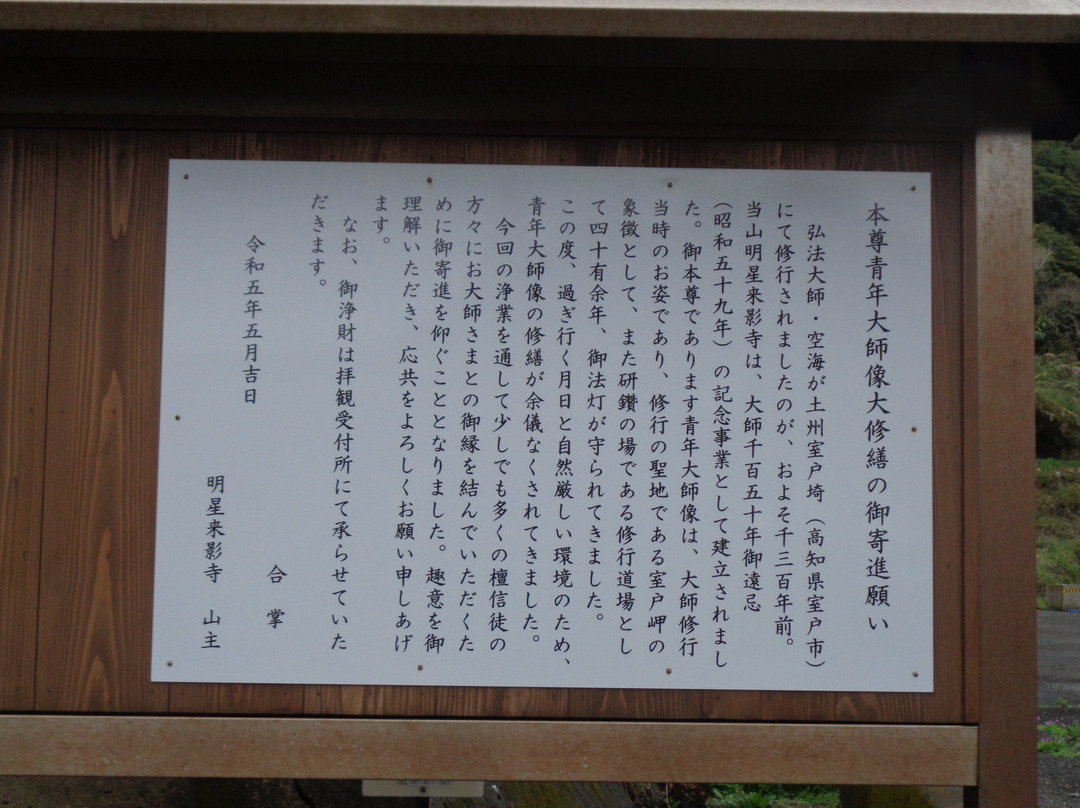 本尊青年大師像大修繕の御寄進願い
弘法大師・空海が土州室戸埼（高知県室戸市）
にて修行されましたのが、およそ千三百年前。
当山明星来影寺は、大師千百五十年御遠忌
（昭和五十九年）の記念事業として建立されまし
た。御本尊であります青年大師像は、大師修行
当時のお姿であり、修行の聖地である室戸岬の
象徴として、また研鑽の場である修行道場とし
て四十有余年、御法灯が守られてきました。
この度、過ぎ行く月日と自然厳しい環境のため、
青年大師像の修繕が余儀なくされてきました。
今回の浄業を通して少しでも多くの檀信徒の
方々にお大師さまとの御縁を結んでいただくた
めに御寄進を仰ぐこととなりました。趣意を御
理解いただき、応共をよろしくお願い申しあげ
ます。
なお、御浄財は拝観受付所にて承らせていた
だきます。
合掌
令和五年五月吉日
明星来影寺 山主